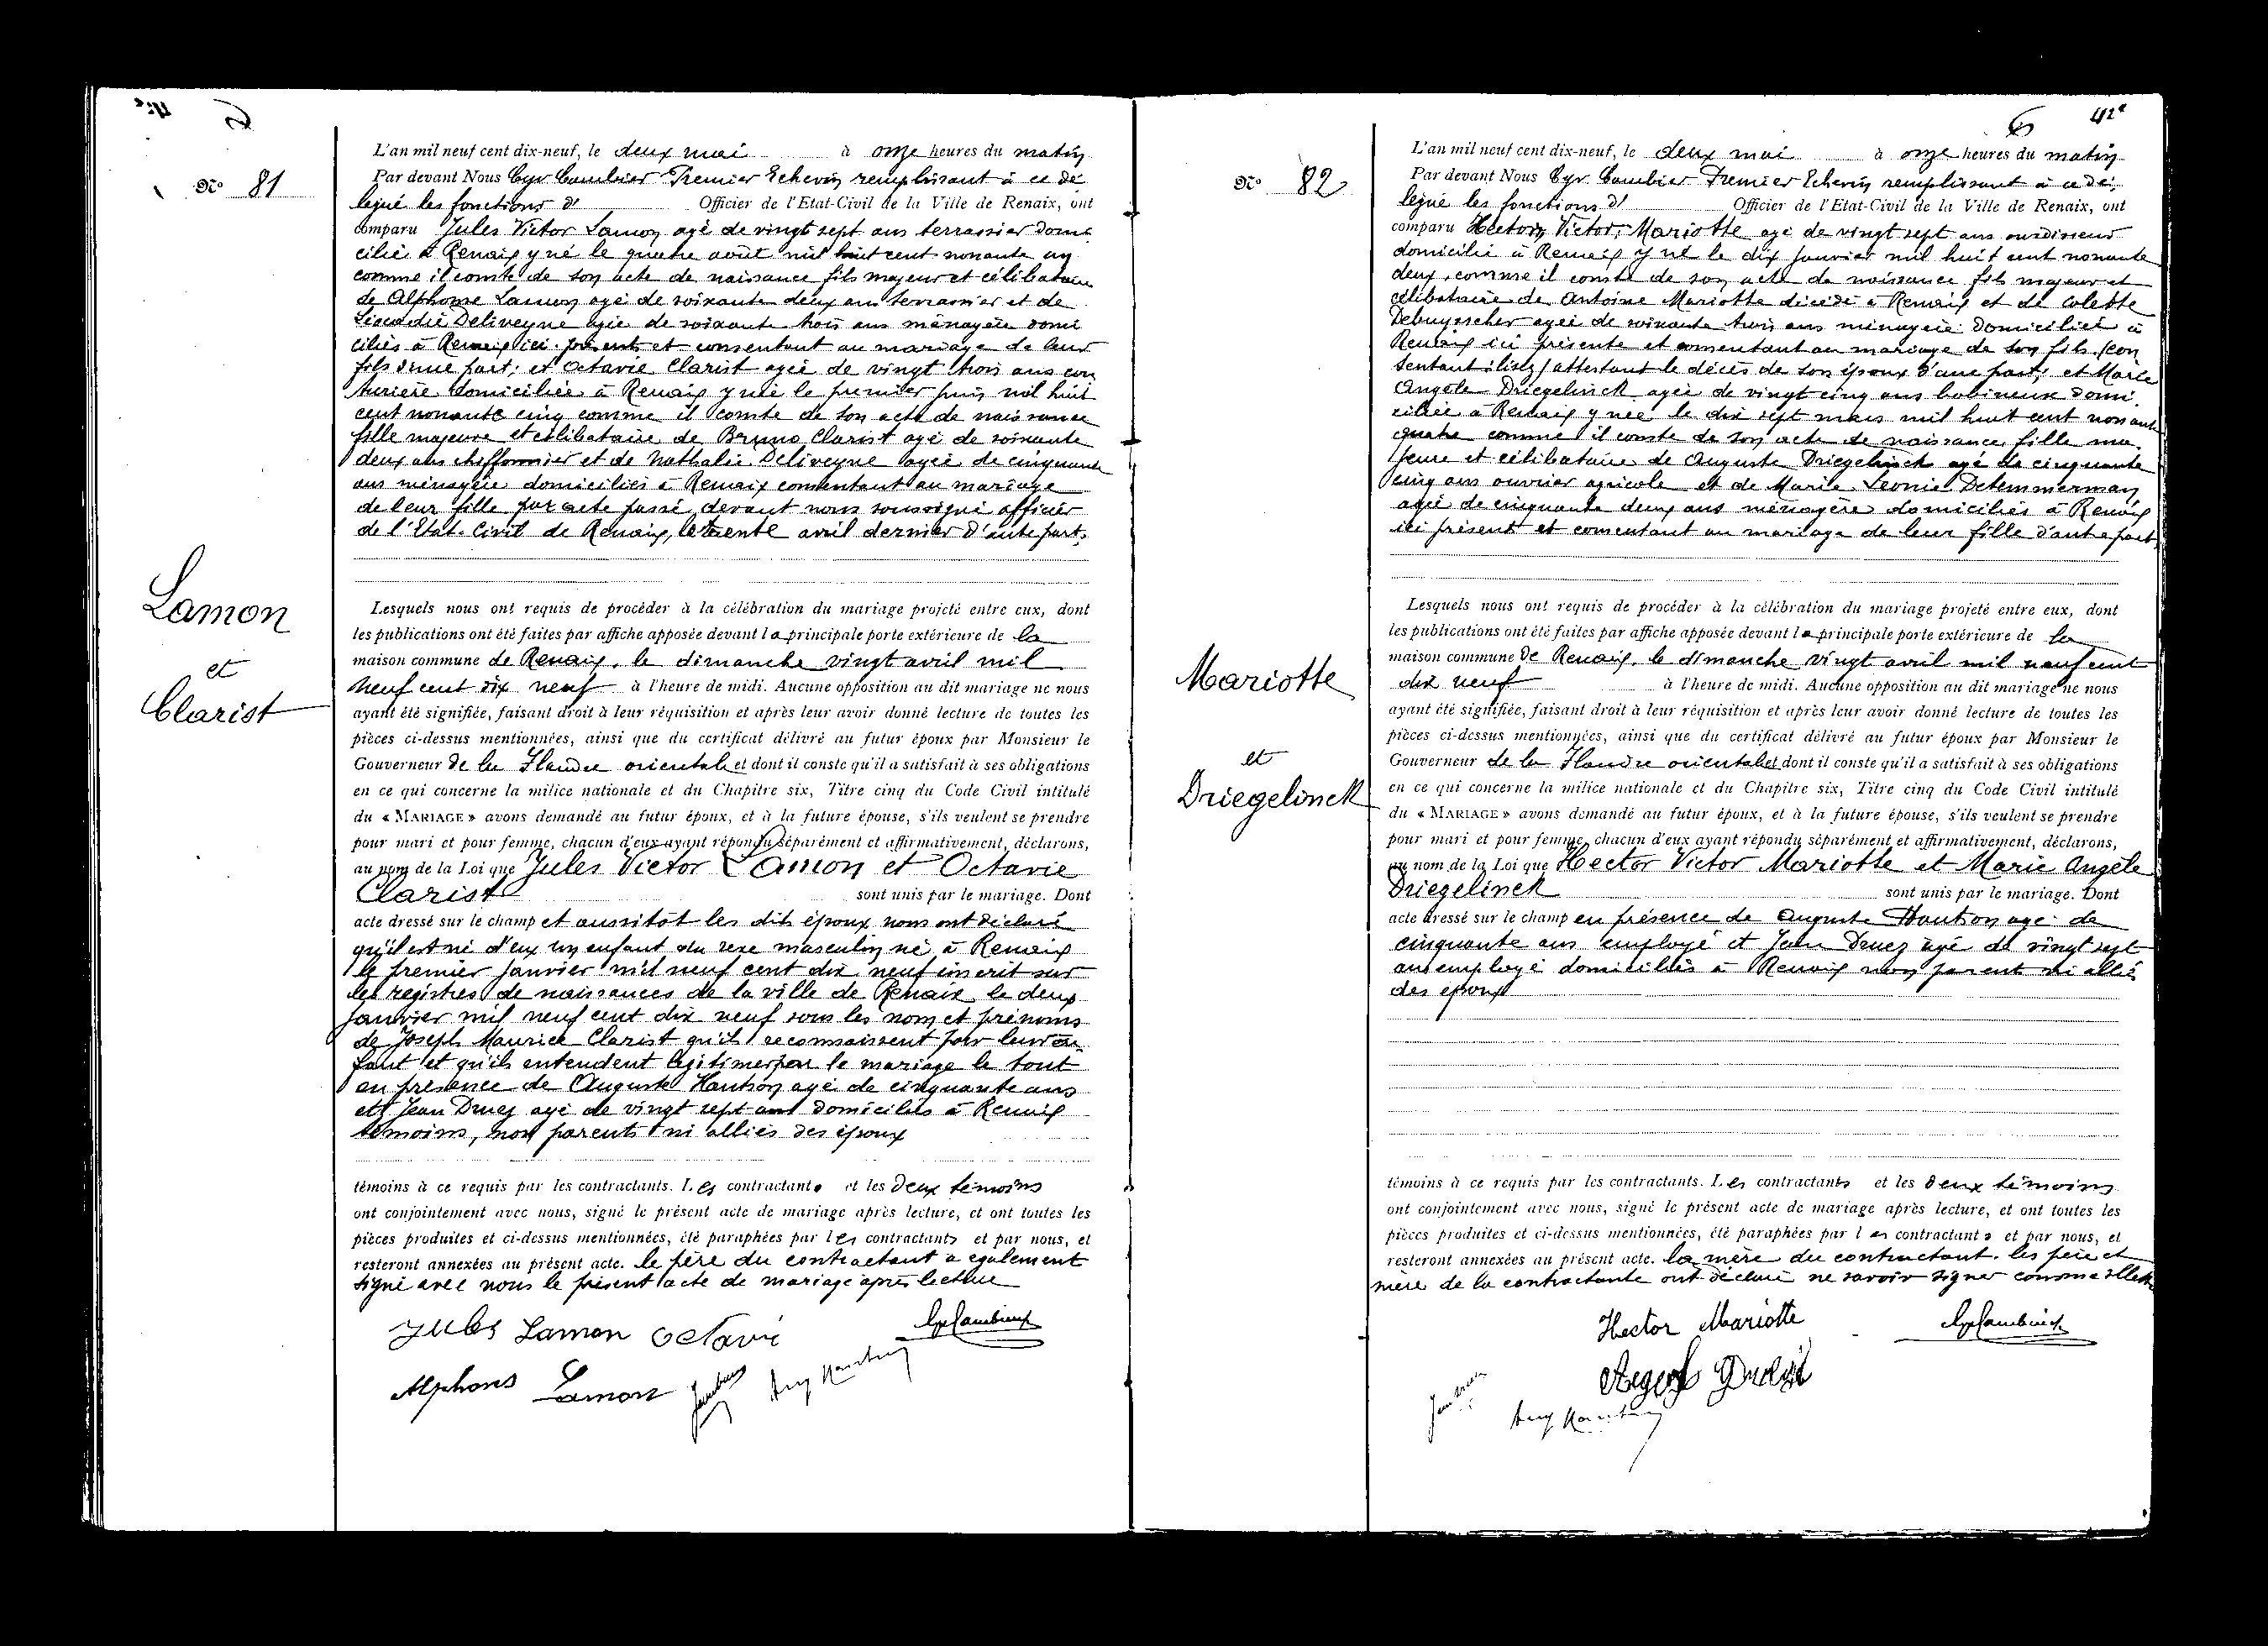 No 81
Lamon
et
Clarist
L'an mil neuf cent dix-neuf, le deux mai à onze heures du matin
Par devant Nous Cyr Cambier Premier Echevin remplissant à ce dé
légué les fonctions d' Officier de l'Etat-Civil de la Ville de Renaix, ont
comparu Jules Victor Lamon agé de vingt sept ans terrassier domi
cilié à Renaix y né le quatre août mil huit cent nonante un
comme il conste de son acte de naissance fils majeur et célibataire
de Alphonse Lamon agé de soixante deux ans terrassier et de
Léocadie Deliveyne agée de soixante trois ans ménagère domi
ciliés à Renaix ici présents et consentant au mariage de leur
fils d'une part; et Octavie Clarist agée de vingt trois ans cou
turière domiciliée à Renaix y née le premier juin mil huit
cent nonante cinq comme il conste de son acte de naissance
fille majeure et célibataire de Bruno Clarist agé de soixante
deux ans chiffonnier et de Nathalie Deliveyne agée de cinquante
ans ménagère domiciliés à Renaix consentant au mariage
de leur fille par acte passé devant nous soussigné officier
de l'Etat-Civil de Renaix, le trente avril dernier d'autre part.
Lesquels nous ont requis de procéder à la célébration du mariage projeté entre eux, dont
les publications ont été faites par affiche apposée devant la principale porte extérieure de la
maison commune de Renaix, le dimanche vingt avril mil
neuf cent dix neuf à l'heure de midi. Aucune opposition au dit mariage ne nous
ayant été signifiée, faisant droit à leur réquisition et après leur avoir donné lecture de toutes les
pièces ci-dessus mentionnées, ainsi que du certificat délivré au futur époux par Monsieur le
Gouverneur de la Flandre orientale et dont il conste qu'il a satisfait à ses obligations
en ce qui concerne la milice nationale et du Chapitre six, Titre cinq du Code Civil intitulé
du « MARIAGE » avons demandé au futur époux, et à la future épouse, s'ils veulent se prendre
pour mari et pour femme, chacun d'eux ayant répondu séparément et affirmativement, déclarons,
au nom de la Loi que Jules Victor Lamon et Octavie
Clarist sont unis par le mariage. Dont
acte dressé sur le champ et aussitôt les dits époux nous ont déclaré
qu'il est né d'eux un enfant du sexe masculin né à Renaix
le premier janvier mil neuf cent dix neuf inscrit sur
les registres de naissances de la ville de Renaix le deux
janvier mil neuf cent dix neuf sous les nom et prénoms
de Joseph Maurice Clarist qu'ils reconnaissent pour leur en
fant et qu'ils entendent légitimer par le mariage le tout
en présence de Auguste Hantson agé de cinquante ans
et Jean Druez agé de vingt sept ans domiciliés à Renaix
témoins, non parents ni alliés des époux
témoins à ce requis par les contractants. Les contractants et les deux témoins
ont conjointement avec nous, signé le présent acte de mariage après lecture, et ont toutes les
pièces produites et ci-dessus mentionnées, été paraphées par les contractants et par nous, et
resteront annexées au présent acte. le père du contractant a également
signé avec nous le présent acte de mariage après lecture
Jules Lamon Octavie
Alphons Lamon
6 42e
No 82
Mariotte
et
Driegelinck
L'an mil neuf cent dix-neuf, le deux mai à onze heures du matin
Par devant Nous Cyr Cambier Premier Echevin remplissant à ce dé
légué les fonctions d' Officier de l'Etat-Civil de la Ville de Renaix, ont
comparu Hector, Victor, Mariotte agé de vingt sept ans ourdisseur
domicilié à Renaix y né le dix janvier mil huit cent nonante
deux, comme il conste de son acte de naissance fils majeur et
célibataire de Antoine Mariotte décédé à Renaix et de Colette
Debuysscher agée de soixante trois ans ménagère domiciliée à
Renaix ici présente et consentant au mariage de son fils (con
sentant: lisez) attestant le décès de son époux d'une part; et Marie
Angèle Driegelinck agée de vingt cinq ans bobineuse domi
ciliée à Renaix y née le dix sept mars mil huit cent nonante
quatre comme il conste de son acte de naissance, fille ma
jeure et célibataire de Auguste Driegelinck agé de cinquante
cinq ans ouvrier agricole et de Marie Leonie Detemmerman
agée de cinquante deux ans ménagère domiciliés à Renaix
ici présent et consentant au mariage de leur fille d'autre part
Lesquels nous ont requis de procéder à la célébration du mariage projeté entre eux, dont
les publications ont été faites par affiche apposée devant la principale porte extérieure de la
maison commune de Renaix, le dimanche vingt avril mil neuf cent
dix neuf à l'heure de midi. Aucune opposition au dit mariage ne nous
ayant été signifiée, faisant droit à leur réquisition et après leur avoir donné lecture de toutes les
pièces ci-dessus mentionnées, ainsi que du certificat délivré au futur époux par Monsieur le
Gouverneur de la Flandre orientale et dont il conste qu'il a satisfait à ses obligations
en ce qui concerne la milice nationale et du Chapitre six, Titre cinq du Code Civil intitulé
du « MARIAGE » avons demandé au futur époux, et à la future épouse, s'ils veulent se prendre
pour mari et pour femme, chacun d'eux ayant répondu séparément et affirmativement, déclarons,
au nom de la Loi que Hector Victor Mariotte et Marie Angèle
Driegelinck sont unis par le mariage. Dont
acte dressé sur le champ en présence de Auguste Hantson agé de
cinquante ans employé et Jean Druez agé de vingt sept
ans employé domiciliés à Renaix non parent ni alliés
des époux
témoins à ce requis par les contractants. Les contractants et les deux témoins
ont conjointement avec nous, signé le présent acte de mariage après lecture, et ont toutes les
pièces produites et ci-dessus mentionnées, été paraphées par les contractants et par nous, et
resteront annexées au présent acte. la mère du contractant. les père et
mère de la contractante ont déclaré ne savoir signer comme illettrés
Hector Mariotte